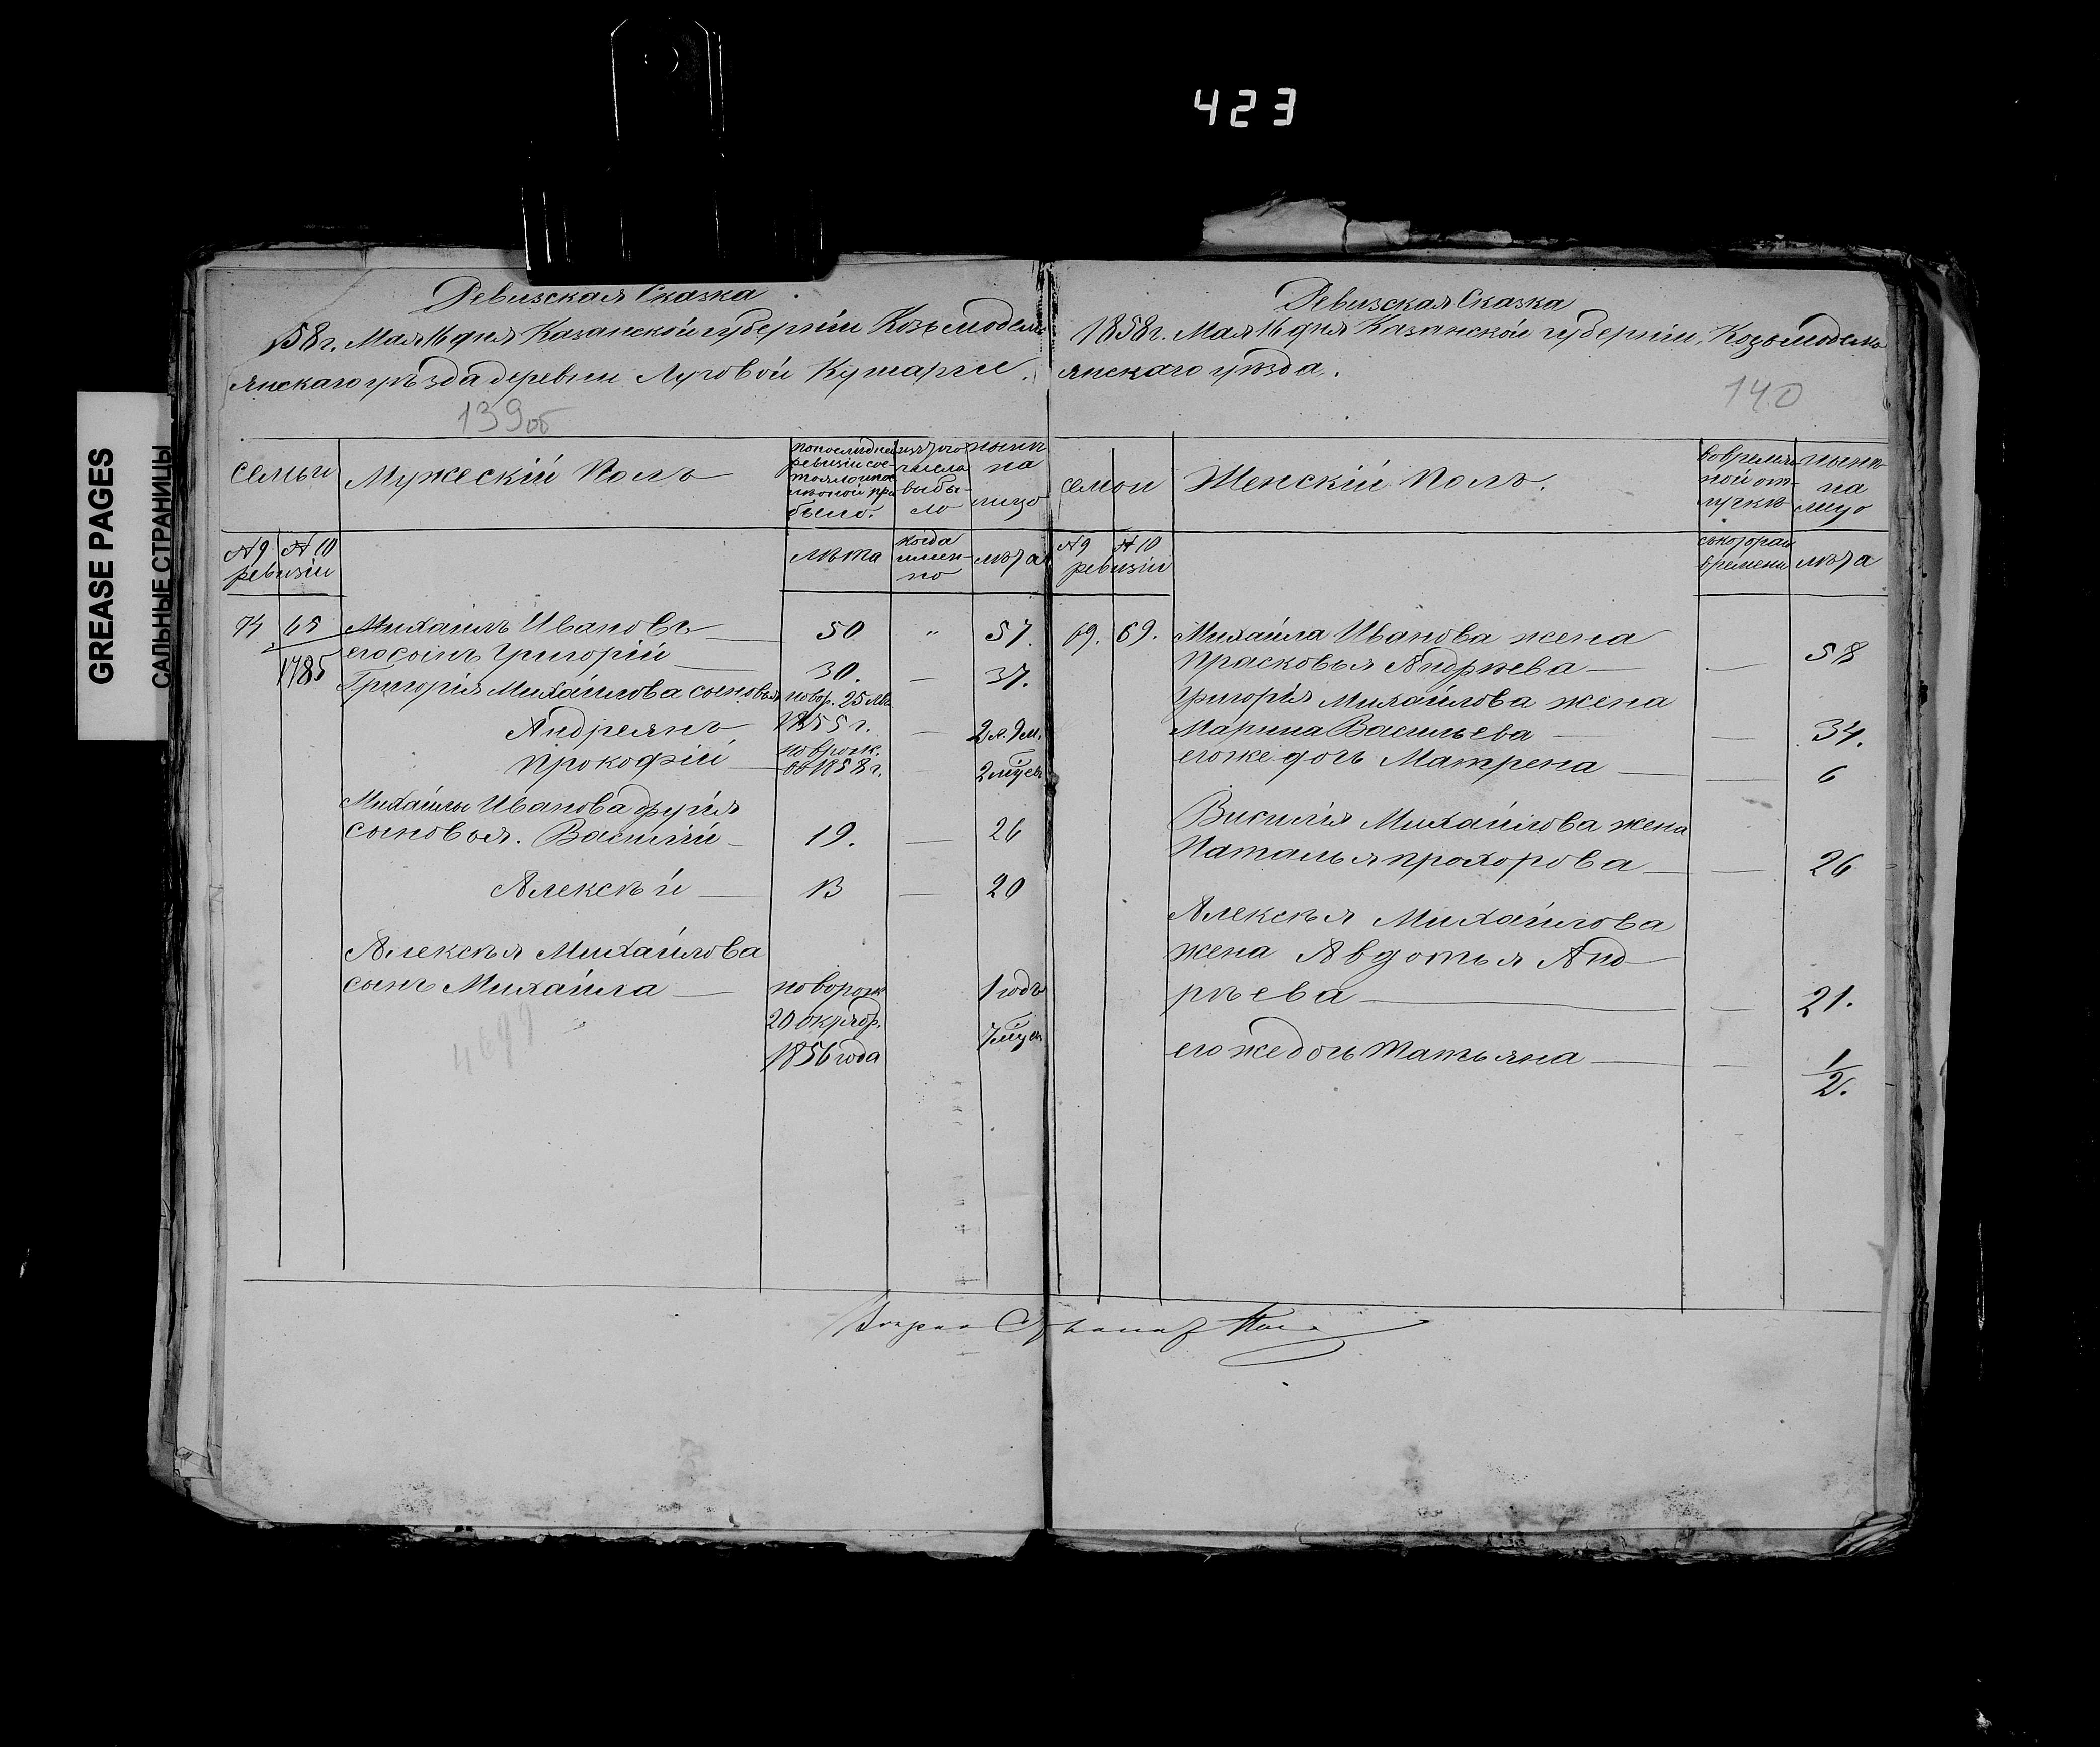 423
GREASE PAGES
САЛЬНЫЕ СТРАНИЦЫ
Ревизская Сказка
58 г. Мая 16 дня Казанской губерніи Козьмодемь
янскаго уѣзда деревни Луговой Кушарги.
139об
семьи
Мужескій Полъ
по последней
ревизіи сос-
тояло и по
слѣ оной при
было.
изъ того
числа
выбы-
ло
нынѣ
на
лицо
№ 9 № 10
ревизіи
лѣта
когда
имен-
но
лѣта
74 69 Михаилъ Ивановъ 50 " 57.
1785 его сынъ Григорій 30. — 37.
Григорія Михайлова сыновья новор. 25
Андреянъ 1855 г. — 2 л. 9 м.
Прокофій новрож. въ 1858 г. 2 мѣсец
Михайлы Иванова другія
сыновья. Василій 19. — 26
Алексѣй — 13 — 20
Алексѣя Михайлова
сынъ Михайла — новорож 1 годъ
20 октяб. 7 мѣсец
1856 года
Ревизская Сказка
1858 г. Мая 16 дня Казанской губерніи, Козьмодемь
янскаго уѣзда.
140
семьи
Женскій Полъ.
во времян
ной от-
лучкѣ
нынѣ
на
лицо
№ 9 № 10
ревизіи
съ котораго
времени
лѣта
69. 69. Михайла Иванова жена
Прасковья Андрѣева — — 58
Григорія Михайлова жена
Марина Васильева — — 34.
его же дочь Матрена — — 6
Василія Михайлова жена
Наталья Прохорова — — 26
Алексѣя Михайлова
жена Авдотья Анд—
рѣева — — 21.
его же дочь Татьяна — — 1/2.